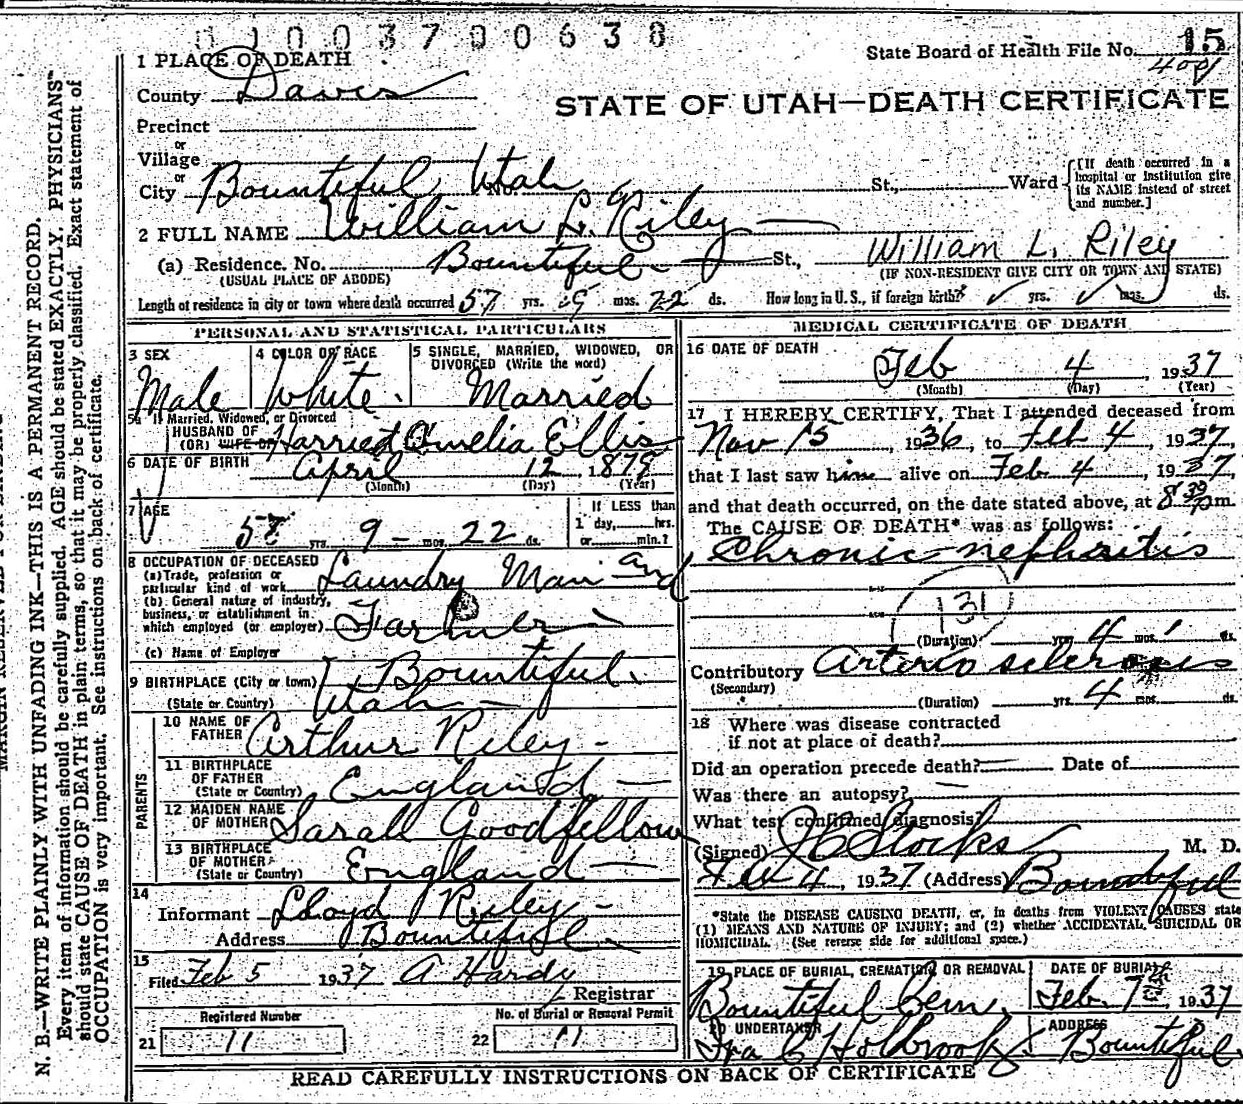 N. B.—WRITE PLAINLY WITH UNFADING INK—THIS IS A PERMANENT RECORD.
Every item of information should be carefully supplied. AGE should be stated EXACTLY. PHYSICIANS
should state CAUSE OF DEATH in plain terms, so that it may be properly classified. Exact statement of
OCCUPATION is very important. See instructions on back of certificate.
State Board of Health File No. 15
1 PLACE OF DEATH
County Davis
STATE OF UTAH—DEATH CERTIFICATE
Precinct
or
Village
or
City Bountiful Utah St., Ward
[If death occurred in a
hospital or institution give
its NAME instead of street
and number.]
2 FULL NAME William L. Riley
William L. Riley
(a) Residence. No. Bountiful St.,
(USUAL PLACE OF ABODE)
(IF NON-RESIDENT GIVE CITY OR TOWN AND STATE)
Length of residence in city or town where death occurred 57 yrs. 9 mos. 22 ds.
How long in U. S., if foreign birth? yrs. mos. ds.
PERSONAL AND STATISTICAL PARTICULARS
3 SEX
Male
4 COLOR OR RACE
White
5 SINGLE, MARRIED, WIDOWED, OR
DIVORCED (Write the word)
Married
5a If Married, Widowed, or Divorced
HUSBAND OF
(OR) WIFE OF Harried Amelia Ellis
6 DATE OF BIRTH April 12, 1879
(Month) (Day) (Year)
7 AGE
57 yrs. 9 mos. 22 ds.
If LESS than
1 day, hrs.
or min.?
8 OCCUPATION OF DECEASED
(a) Trade, profession or
particular kind of work Laundry Man and
(b) General nature of industry,
business, or establishment in
which employed (or employer) Farmer
(c) Name of Employer
9 BIRTHPLACE (City or town) Bountiful
(State or Country) Utah
PARENTS
10 NAME OF
FATHER Arthur Riley
11 BIRTHPLACE
OF FATHER
(State or Country) England
12 MAIDEN NAME
OF MOTHER Sarah Goodfellow
13 BIRTHPLACE
OF MOTHER
(State or Country) England
14
Informant Lloyd Riley
Address Bountiful
15
Filed Feb 5 1937 A Hardy
Registrar
Registered Number
21 11
No. of Burial or Removal Permit
22 11
MEDICAL CERTIFICATE OF DEATH
16 DATE OF DEATH
Feb 4, 1937
(Month) (Day) (Year)
17 I HEREBY CERTIFY, That I attended deceased from
Nov 15 1936, to Feb 4, 1937,
that I last saw him alive on Feb 4, 1937,
and that death occurred, on the date stated above, at 8 30 p m.
The CAUSE OF DEATH* was as follows:
Chronic nephritis
131
(Duration) yrs. 4 mos. ds.
Contributory Arterio sclerosis
(Secondary)
(Duration) yrs. 4 mos. ds.
18 Where was disease contracted
if not at place of death?
Did an operation precede death? Date of
Was there an autopsy?
What test confirmed diagnosis?
(Signed) Stocks M. D.
Feb 4, 1937 (Address) Bountiful
*State the DISEASE CAUSING DEATH, or, in deaths from VIOLENT CAUSES state
(1) MEANS AND NATURE OF INJURY; and (2) whether ACCIDENTAL, SUICIDAL OR
HOMICIDAL. (See reverse side for additional space.)
19 PLACE OF BURIAL, CREMATION, OR REMOVAL
Bountiful Cem.
DATE OF BURIAL
Feb 7 1937
20 UNDERTAKER
Ira C Holbrook
ADDRESS
Bountiful
READ CAREFULLY INSTRUCTIONS ON BACK OF CERTIFICATE